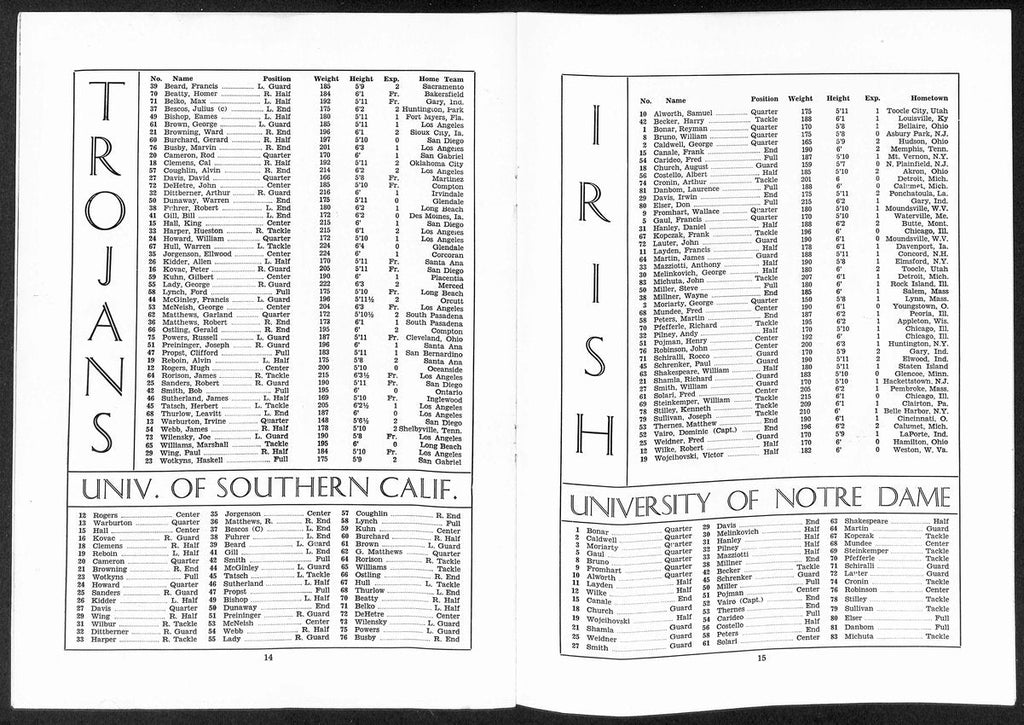 TROJANS
No. Name Position Weight Height Exp. Home Team
39 Beard, Francis L. Guard 185 5'9 2 Sacramento
70 Beatty, Homer R. Half 184 6'1 Fr. Bakersfield
71 Belko, Max L. Half 192 5'11 Fr. Gary, Ind.
37 Bescos, Julius (c) L. End 175 6'2 2 Huntington, Park
49 Bishop, Eames L. Half 180 5'11 1 Fort Myers, Fla.
61 Brown, George L. Guard 185 5'11 1 Los Angeles
21 Browning, Ward R. End 196 6'1 2 Sioux City, Ia.
60 Burchard, Gerard R. Half 197 5'10 0 San Diego
76 Busby, Marvin R. End 201 6'3 1 Los Angeles
20 Cameron, Rod Quarter 170 6' 1 San Gabriel
18 Clemens, Cal R. Half 192 5'11 2 Oklahoma City
57 Coughlin, Alvin R. End 214 6'2 2 Los Angeles
27 Davis, David Quarter 166 5'8 Fr. Martinez
72 DeHetre, John Center 185 5'10 Fr. Compton
32 Dittberner, Arthur R. Guard 216 6' 1 Irvindale
50 Dunaway, Warren End 175 5'11 0 Glendale
38 Fuhrer, Robert L. End 180 6'2 1 Long Beach
41 Gill, Bill L. End 172 6'2 0 Des Moines, Ia.
15 Hall, King Center 215 6' 1 San Diego
33 Harper, Hueston R. Tackle 215 6'1 2 Los Angeles
24 Howard, William Quarter 172 5'10 1 Los Angeles
67 Hull, Warren L. Tackle 224 6'4 0 Glendale
35 Jorgenson, Ellwood Center 224 6' 1 Corcoran
26 Kidder, Allen L. Half 170 5'11 Fr. Santa Ana
16 Kovac, Peter R. Guard 205 5'11 Fr. San Diego
59 Kuhn, Gilbert Center 190 6' 1 Placentia
55 Lady, George R. Guard 222 6'3 2 Merced
58 Lynch, Ford Full 175 5'10 Fr. Long Beach
44 McGinley, Francis L. Guard 196 5'11½ 2 Orcutt
53 McNeish, George Center 204 6'3 Fr. Los Angeles
62 Matthews, Garland Quarter 172 5'10½ 2 South Pasadena
36 Matthews, Robert R. End 173 6'1 1 South Pasadena
66 Ostling, Gerald R. End 195 6' 2 Compton
75 Powers, Russell L. Guard 187 5'11 Fr. Cleveland, Ohio
51 Preininger, Joseph R. Guard 196 6' 1 Santa Ana
47 Propst, Clifford Full 183 5'11 1 San Bernardino
19 Reboin, Alvin L. Half 175 5'8 2 Santa Ana
12 Rogers, Hugh Center 200 5'10 0 Oceanside
64 Rorison, James R. Tackle 215 6'3½ Fr. Los Angeles
25 Sanders, Robert R. Guard 190 5'11 Fr. San Diego
42 Smith, Bob Full 195 6' 0 Ontario
46 Sutherland, James L. Half 169 5'10 Fr. Inglewood
45 Tatsch, Herbert L. Tackle 205 6'2½ 1 Los Angeles
68 Thurlow, Leavitt L. End 187 6' 0 Los Angeles
13 Warburton, Irvine Quarter 148 5'6½ 2 San Diego
54 Webb, James R. Half 178 5'10 2 Shelbyville, Tenn.
73 Wilensky, Joe L. Guard 190 5'8 Fr. Los Angeles
65 Williams, Marshall Tackle 195 6' 0 Long Beach
29 Wing, Paul R. Half 184 5'10 Fr. Los Angeles
23 Wotkyns, Haskell Full 175 5'9 2 San Gabriel
UNIV. OF SOUTHERN CALIF.
12 Rogers Center 35 Jorgenson Center 57 Coughlin R. End
13 Warburton Quarter 36 Matthews, R. R. End 58 Lynch Full
15 Hall Center 37 Bescos (C) L. End 59 Kuhn Center
16 Kovac R. Guard 38 Fuhrer L. End 60 Burchard R. Half
18 Clemens R. Half 39 Beard L. Guard 61 Brown L. Guard
19 Reboin L. Half 41 Gill L. End 62 G. Matthews Quarter
20 Cameron Quarter 42 Smith Full 64 Rorison R. Tackle
21 Browning R. End 44 McGinley L. Guard 65 Williams Tackle
23 Wotkyns Full 45 Tatsch L. Tackle 66 Ostling R. End
24 Howard Quarter 46 Sutherland L. Half 67 Hull L. Tackle
25 Sanders R. Guard 47 Propst Full 68 Thurlow L. End
26 Kidder L. Half 49 Bishop L. Half 70 Beatty R. Half
27 Davis Quarter 50 Dunaway End 71 Belko L. Half
29 Wing R. Half 51 Preininger R. Guard 72 DeHetre Center
31 Wilbur R. Tackle 53 McNeish Center 73 Wilensky L. Guard
32 Dittberner R. Guard 54 Webb R. Half 75 Powers L. Guard
33 Harper R. Tackle 55 Lady R. Guard 76 Busby R. End
14
IRISH
No. Name Position Weight Height Exp. Hometown
10 Alworth, Samuel Quarter 175 5'11 1 Toocle City, Utah
42 Becker, Harry Tackle 188 6'1 1 Louisville, Ky
1 Bonar, Reyman Quarter 170 5'8 1 Bellaire, Ohio
8 Bruno, William Quarter 175 5'8 0 Asbury Park, N.J.
2 Caldwell, George Quarter 165 5'9 2 Hudson, Ohio
15 Canale, Frank End 190 6' 2 Memphis, Tenn.
54 Carideo, Fred Full 187 5'10 1 Mt. Vernon, N.Y.
18 Church, August Guard 159 5'7 0 N. Plainfield, N.J.
56 Costello, Albert Half 185 5'10 2 Akron, Ohio
74 Cronin, Arthur Tackle 201 6 0 Detroit, Mich.
81 Danbom, Laurence Full 188 6' 0 Calumet, Mich.
29 Davis, Irwin End 175 5'11 2 Ponchatoula, La.
80 Elser, Don Full 215 6'2 1 Gary, Ind.
9 Fromhart, Wallace Quarter 180 5'10 1 Moundsville, W.V.
5 Gaul, Francis Quarter 170 5'10 1 Waterville, Me.
31 Hanley, Daniel Half 188 6'2 2 Butte, Mont.
67 Kopczak, Frank Tackle 196 6' 0 Chicago, Ill.
72 Lauter, John Guard 190 6'1 0 Moundsville, W.V.
11 Layden, Francis Half 178 6'1 1 Davenport, Ia.
64 Martin, James Guard 188 5'11 1 Concord, N.H.
33 Mazziotti, Anthony Half 190 5'8 1 Elmsford, N.Y.
30 Melinkovich, George Half 180 6' 2 Toocle, Utah
83 Michuta, John Tackle 207 6'1 1 Detroit, Mich.
50 Miller, Steve Full 180 6' 1 Rock Island, Ill.
38 Millner, Wayne End 185 6' 1 Salem, Mass
3 Moriarty, George Quarter 150 5'8 1 Lynn, Mass.
68 Mundee, Fred Center 190 6'1 0 Youngstown, O.
58 Peters, Martin End 187 6'2 1 Peoria, Ill.
70 Pfefferle, Richard Tackle 195 6'2 1 Appleton, Wis.
32 Pilney, Andy Half 170 5'10 1 Chicago, Ill.
51 Pojman, Henry Center 192 6' 1 Chicago, Ill.
76 Robinson, John Center 200 6'3 1 Huntington, N.Y.
71 Schiralli, Rocco Guard 170 5'9 2 Gary, Ind.
45 Schrenker, Paul Guard 190 5'11 2 Elwood, Ind.
63 Shakespeare, William Half 180 5'11 1 Staten Island
21 Shamla, Richard Guard 183 5'10 0 Glencoe, Minn.
27 Smith, William Guard 170 5'10 1 Hackettstown, N.J.
61 Solari, Fred Center 205 6'2 1 Pembroke, Mass.
69 Steinkemper, William Tackle 215 6'1 0 Chicago, Ill.
78 Stilley, Kenneth Tackle 209 6'1 1 Clairton, Pa.
79 Sullivan, Joseph Tackle 210 6' 1 Belle Harbor, N.Y.
53 Thernes, Matthew End 190 6'1 1 Cincinnati, O.
52 Vairo, Dominic (Capt.) End 196 6'2 2 Calumet, Mich.
25 Weidner, Fred Guard 170 5'9 1 LaPorte, Ind.
12 Wilke, Robert Half 170 6' 0 Hamilton, Ohio
19 Wojcihovski, Victor Half 182 6' 0 Weston, W. Va.
UNIVERSITY OF NOTRE DAME
1 Bonar Quarter 29 Davis End 63 Shakespeare Half
2 Caldwell Quarter 30 Melinkovich Half 64 Martin Guard
3 Moriarty Quarter 31 Hanley Half 67 Kopczak Tackle
5 Gaul Quarter 32 Pilney Half 68 Mundee Center
8 Bruno Quarter 33 Mazziotti Half 69 Steinkemper Tackle
9 Fromhart Quarter 38 Millner End 70 Pfefferle Tackle
10 Alworth Quarter 42 Becker Tackle 71 Schiralli Guard
11 Layden Half 45 Schrenker Guard 72 Lauter Guard
12 Wilke Half 50 Miller Full 74 Cronin Tackle
15 Canale End 51 Pojman Center 76 Robinson Center
18 Church Guard 52 Vairo (Capt.) End 78 Stilley Tackle
19 Wojcihovski Half 53 Thernes End 79 Sullivan Tackle
21 Shamla Guard 54 Carideo Full 80 Elser Full
25 Weidner Guard 56 Costello Half 81 Danbom Full
27 Smith Guard 58 Peters End 83 Michuta Tackle
61 Solari Center
15